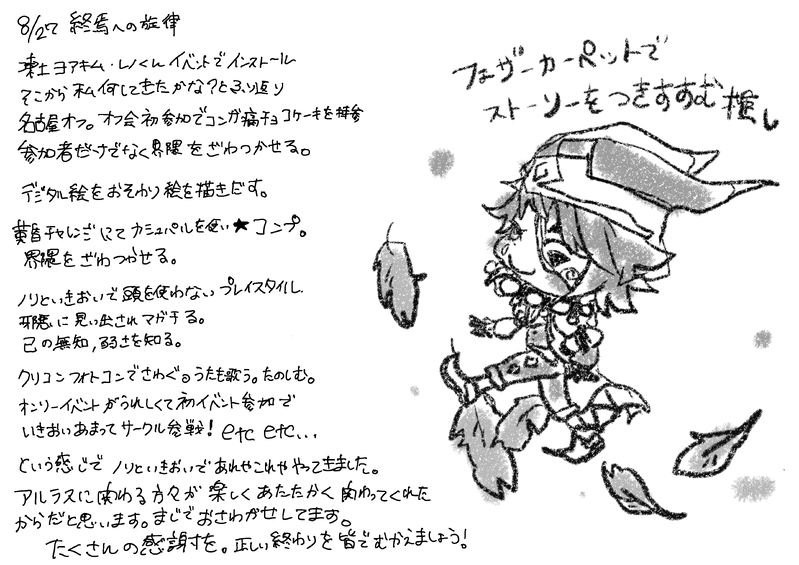 8/27 終焉への旋律
ヨアキム・レノくん イベントでインストール
そこから私何してきたかな?とふり返り
名古屋オフ。オフ会初参加でコンガ痛チョコケーキを持参
参加者だけでなく界隈をざわつかせる。
デジタル絵をおそわり絵を描きだす。
チャレンジにてカシュパルを使い★コンプ。
界隈をざわつかせる。
ノリといきおいで頭を使わないプレイスタイル
邪悪に思い出されマガチる。
己の無知,弱さを知る。
クリコンフォトコンでさわぐ。うたも歌う。たのしむ。
オンリーイベントがうれしくて初イベント参加で
いきおいあまってサークル参戦! etc etc...
という感じで ノリといきおいであれやこれややってきました。
アルテスに関わる方々が楽しくあたたかく関わってくれた
からだと思います。まじでおさわがせしてます。
たくさんの感謝を。正しい終わりを皆でむかえましょう!
フェザーカーペットで
ストーリーをつきすすむ推し